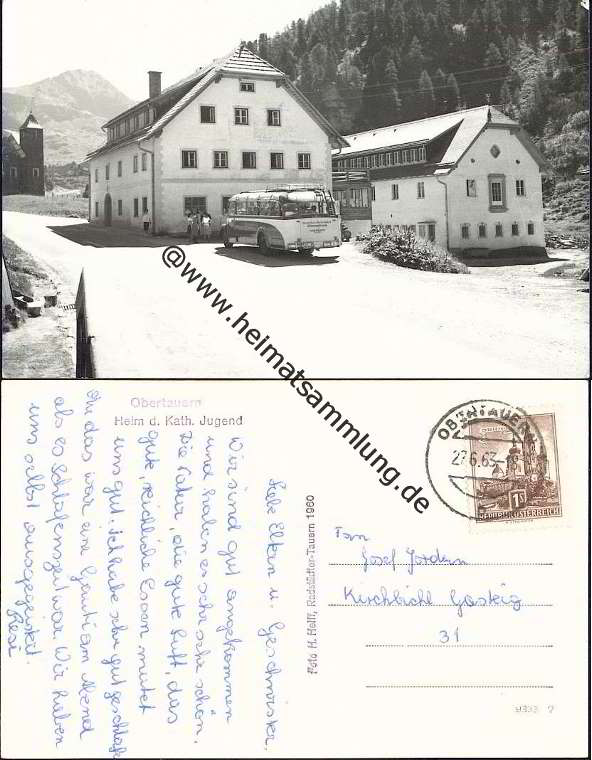 @www.heimatsammlung.de
Obertauern
Heim d. Kath. Jugend
Liebe Eltern u. Geschwister.
Wir sind gut angekommen
und haben es sehr sehr schön.
Die Natur, die gute Luft, das
gute, reichliche Essen mutet
uns gut. Ich habe sehr gut geschlafen
das war eine Gaudi am Abend
als es Schlafenszeit war. Wir haben
uns selbst ausgegeistet.
Resi
Foto H. Helff, Radstädter-Tauern 1960
OBERTAUERN
27.6.63
1S
REPUBLIK ÖSTERREICH
Fam
Josef Jordern
Kirchbichl Gasteig
31
9393 2